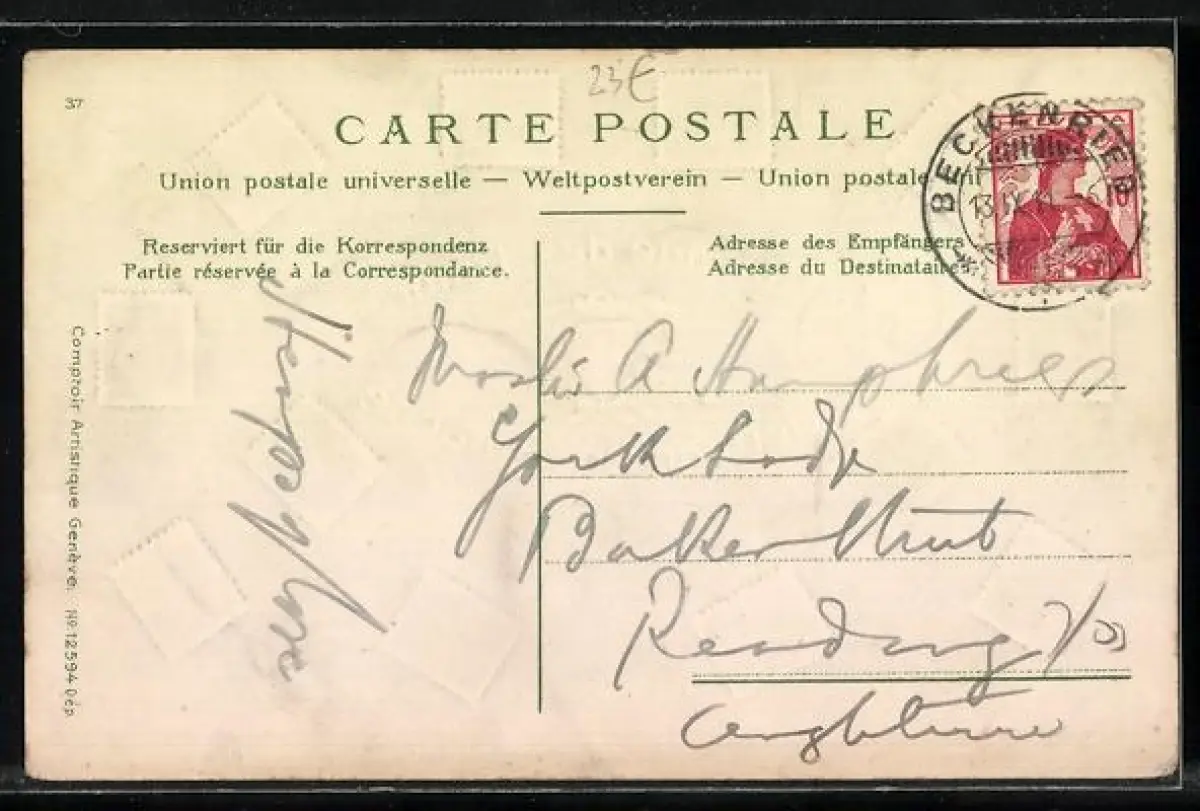 23€
37
CARTE POSTALE
Union postale universelle — Weltpostverein — Union postale
Reserviert für die Korrespondenz
Partie réservée à la Correspondance.
Adresse des Empfängers
Adresse du Destinataire.
BECKENRIED
13 IX 11
A Humphries
York Lodge
Baker Street
Reading
Angleterre
Comptoir Artistique Genève. No 12594 Dép